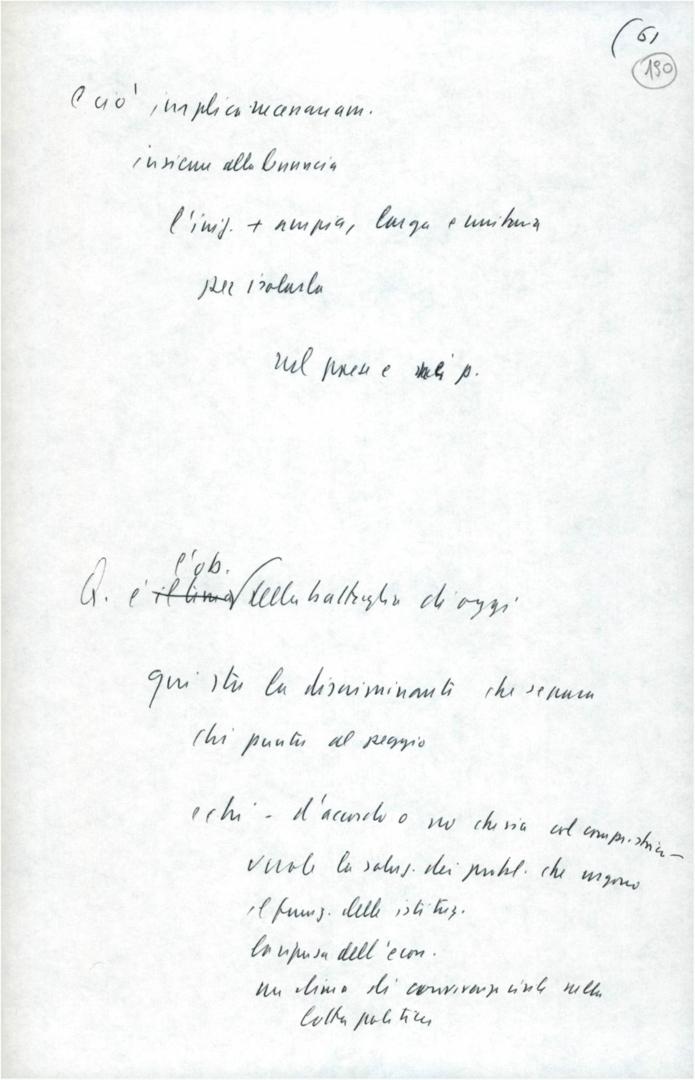 (6)
190
e ciò implica necessariam.
insieme alla denuncia
l'iniz. + ampia, larga e unitaria
per isolarla
nel paese e nei p.
l'ob.
Q. è il tema della battaglia di oggi
qui sta la discriminante che separa
chi punta al peggio
e chi - d'accordo o no che sia col comp. stor. -
vuole la soluz. dei probl. che urgono
il funz. delle istituz.
la ripresa dell'econ.
un clima di convivenza civile nella
lotta politica